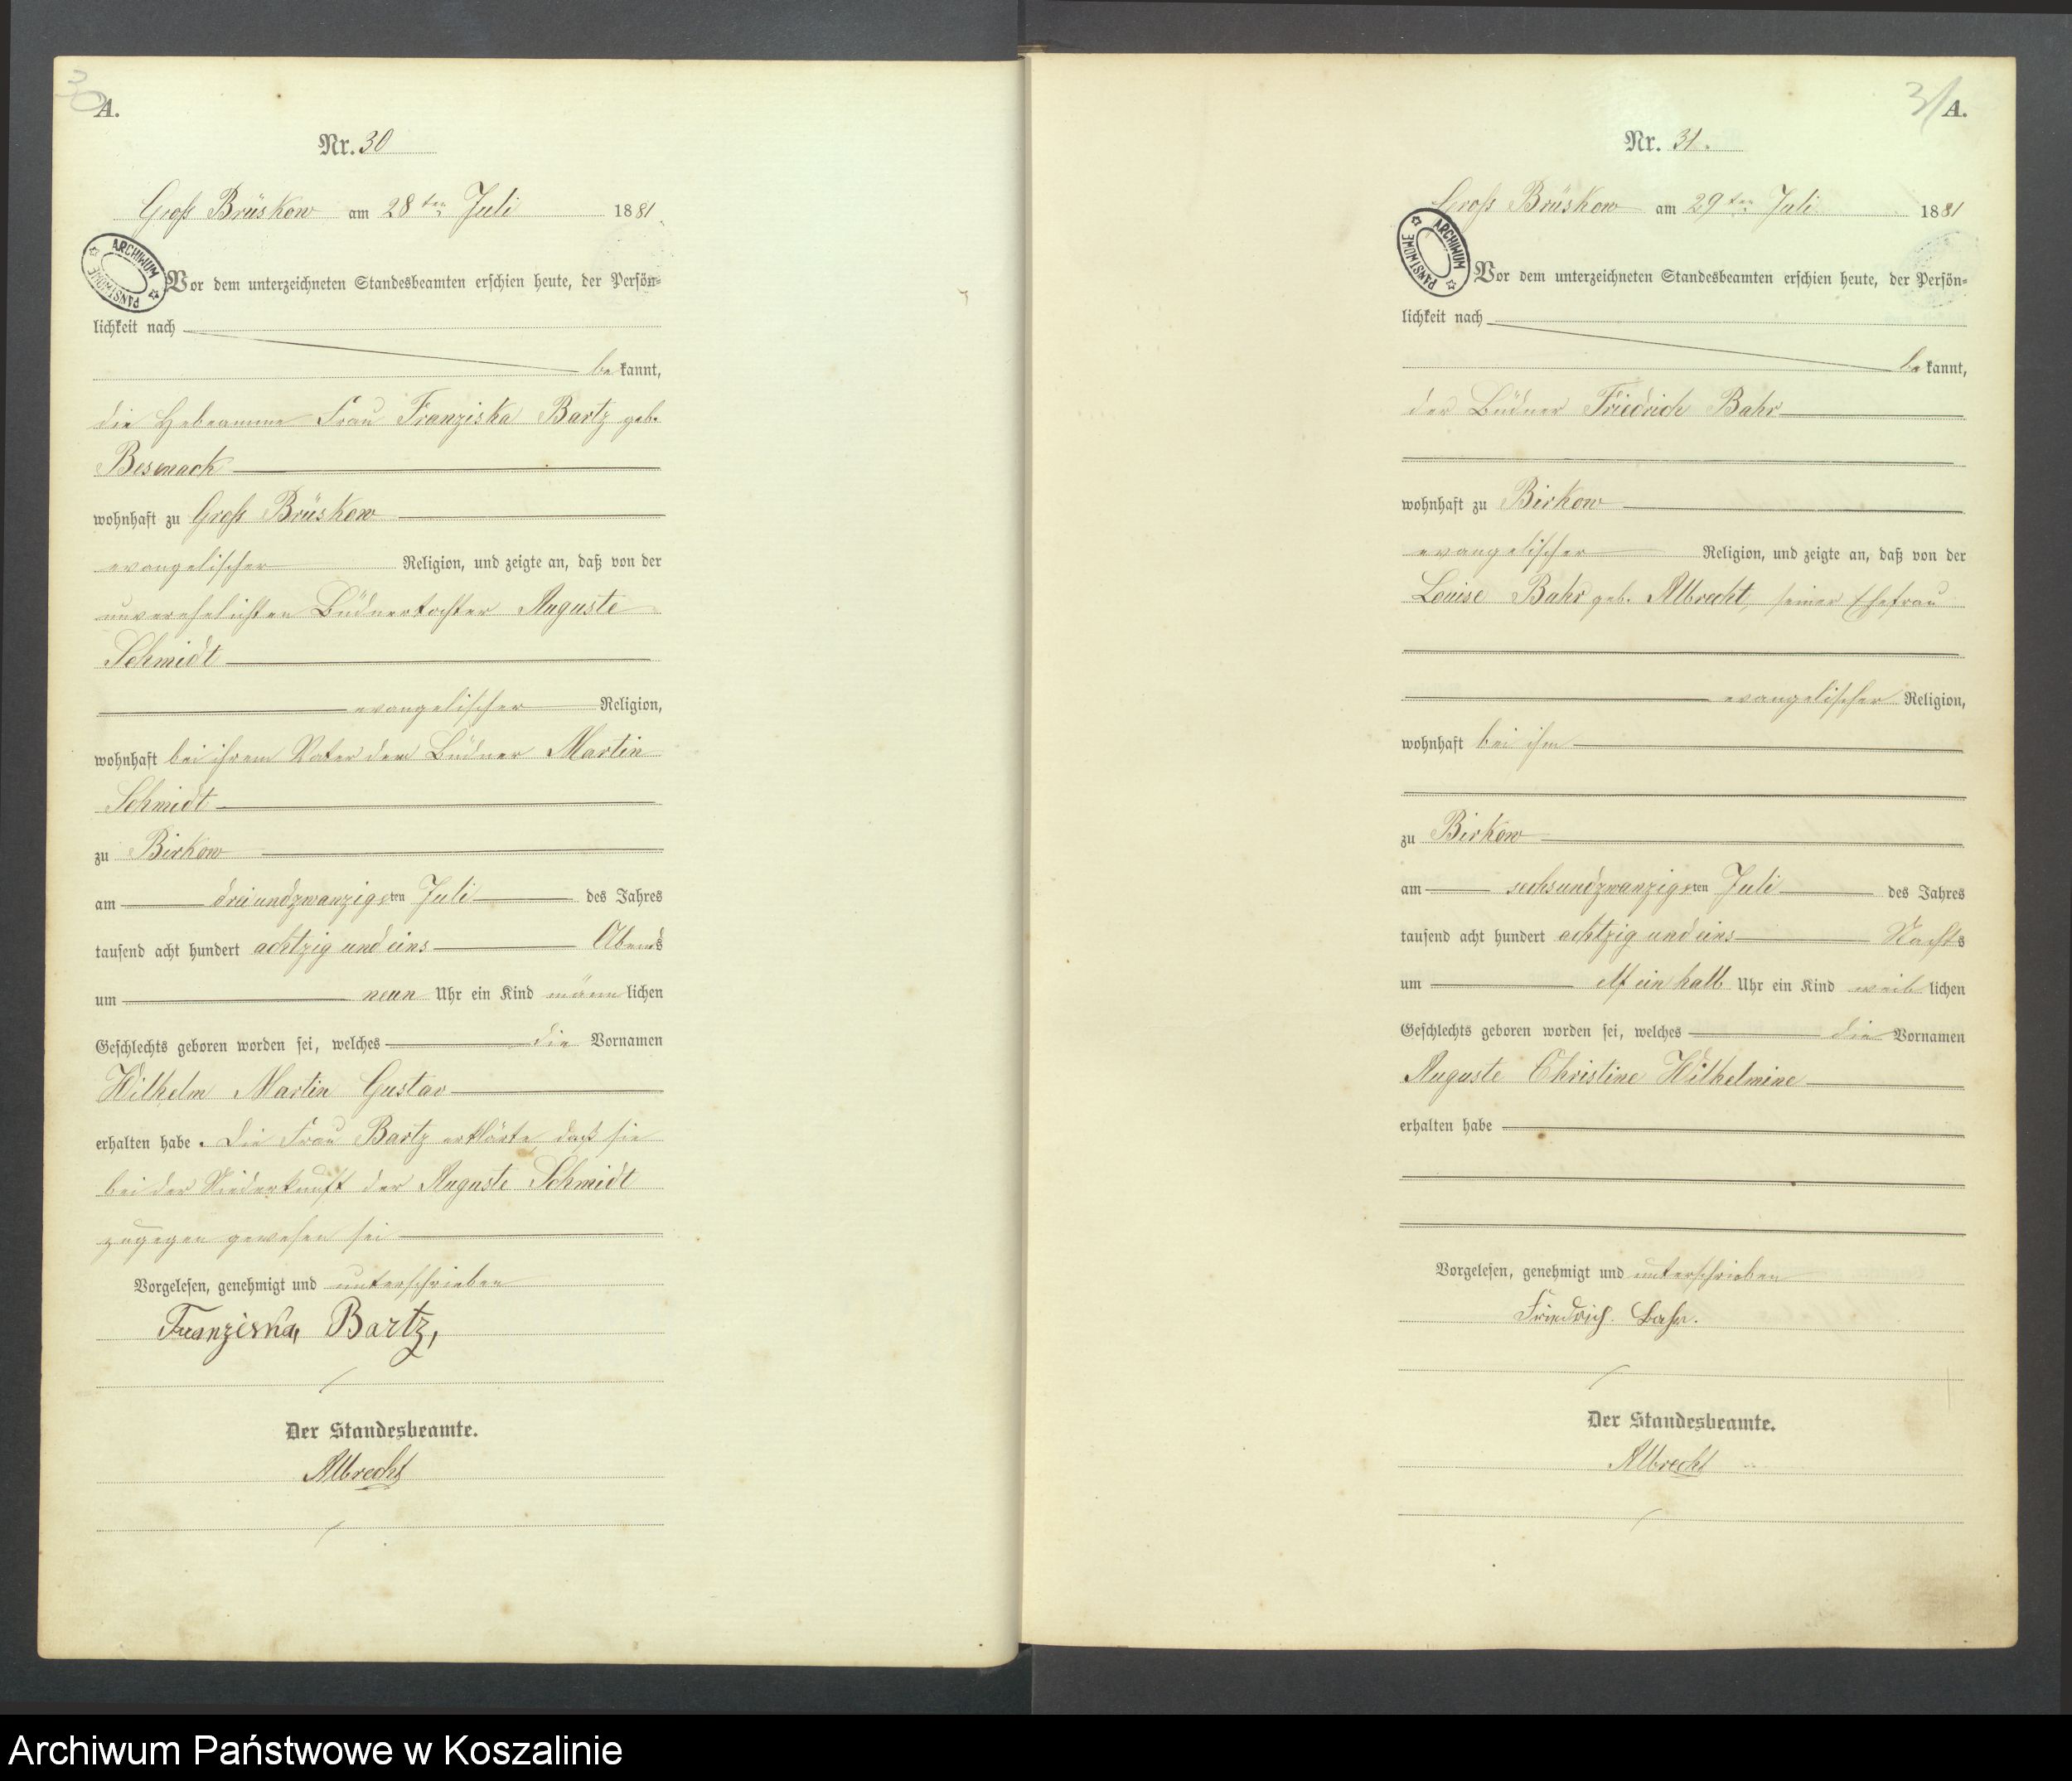 30
A.
Nr. 30
Groß Brüskow am 28ten Juli 1881.
ARCHIWUM PAŃSTWOWE
Vor dem unterzeichneten Standesbeamten erschien heute, der Persön=
lichkeit nach
be kannt,
die Hebeamme Frau Franziska Bartz geb.
Besmack
wohnhaft zu Groß Brüskow
evangelischer Religion, und zeigte an, daß von der
unverehelichten Büdnertochter Auguste
Schmidt
evangelischer Religion,
wohnhaft bei ihrem Vater dem Büdner Martin
Schmidt
zu Birkow
am dreiundzwanzigsten Juli des Jahres
tausend acht hundert achtzig und eins Abends
um neun Uhr ein Kind männlichen
Geschlechts geboren worden sei, welches die Vornamen
Wilhelm Martin Gustav
erhalten habe. Die Frau Bartz erklärte, daß sie
bei der Niederkunft der Auguste Schmidt
zugegen gewesen sei
Vorgelesen, genehmigt und unterschrieben
Franziska Bartz,
Der Standesbeamte.
Albrecht
31
A.
Nr. 31.
Groß Brüskow am 29ten Juli 1881
ARCHIWUM PAŃSTWOWE
Vor dem unterzeichneten Standesbeamten erschien heute, der Persön=
lichkeit nach
be kannt,
der Büdner Friedrich Bahr
wohnhaft zu Birkow
evangelischer Religion, und zeigte an, daß von der
Louise Bahr geb. Albrecht, seiner Ehefrau
evangelischer Religion,
wohnhaft bei ihm
zu Birkow
am sechsundzwanzigsten Juli des Jahres
tausend acht hundert achtzig und eins Nachts
um elf ein halb Uhr ein Kind weiblichen
Geschlechts geboren worden sei, welches die Vornamen
Auguste Christine Wilhelmine
erhalten habe
Vorgelesen, genehmigt und unterschrieben
Friedrich Bahr.
Der Standesbeamte.
Albrecht
Archiwum Państwowe w Koszalinie